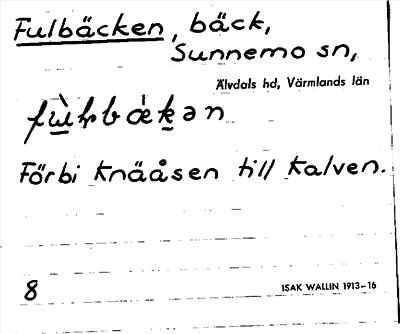 Fulbäcken, bäck,
Sunnemo sn,
Älvdals hd, Värmlands län
Förbi Knääsen till Kalven.
8
ISAK WALLIN 1913–16